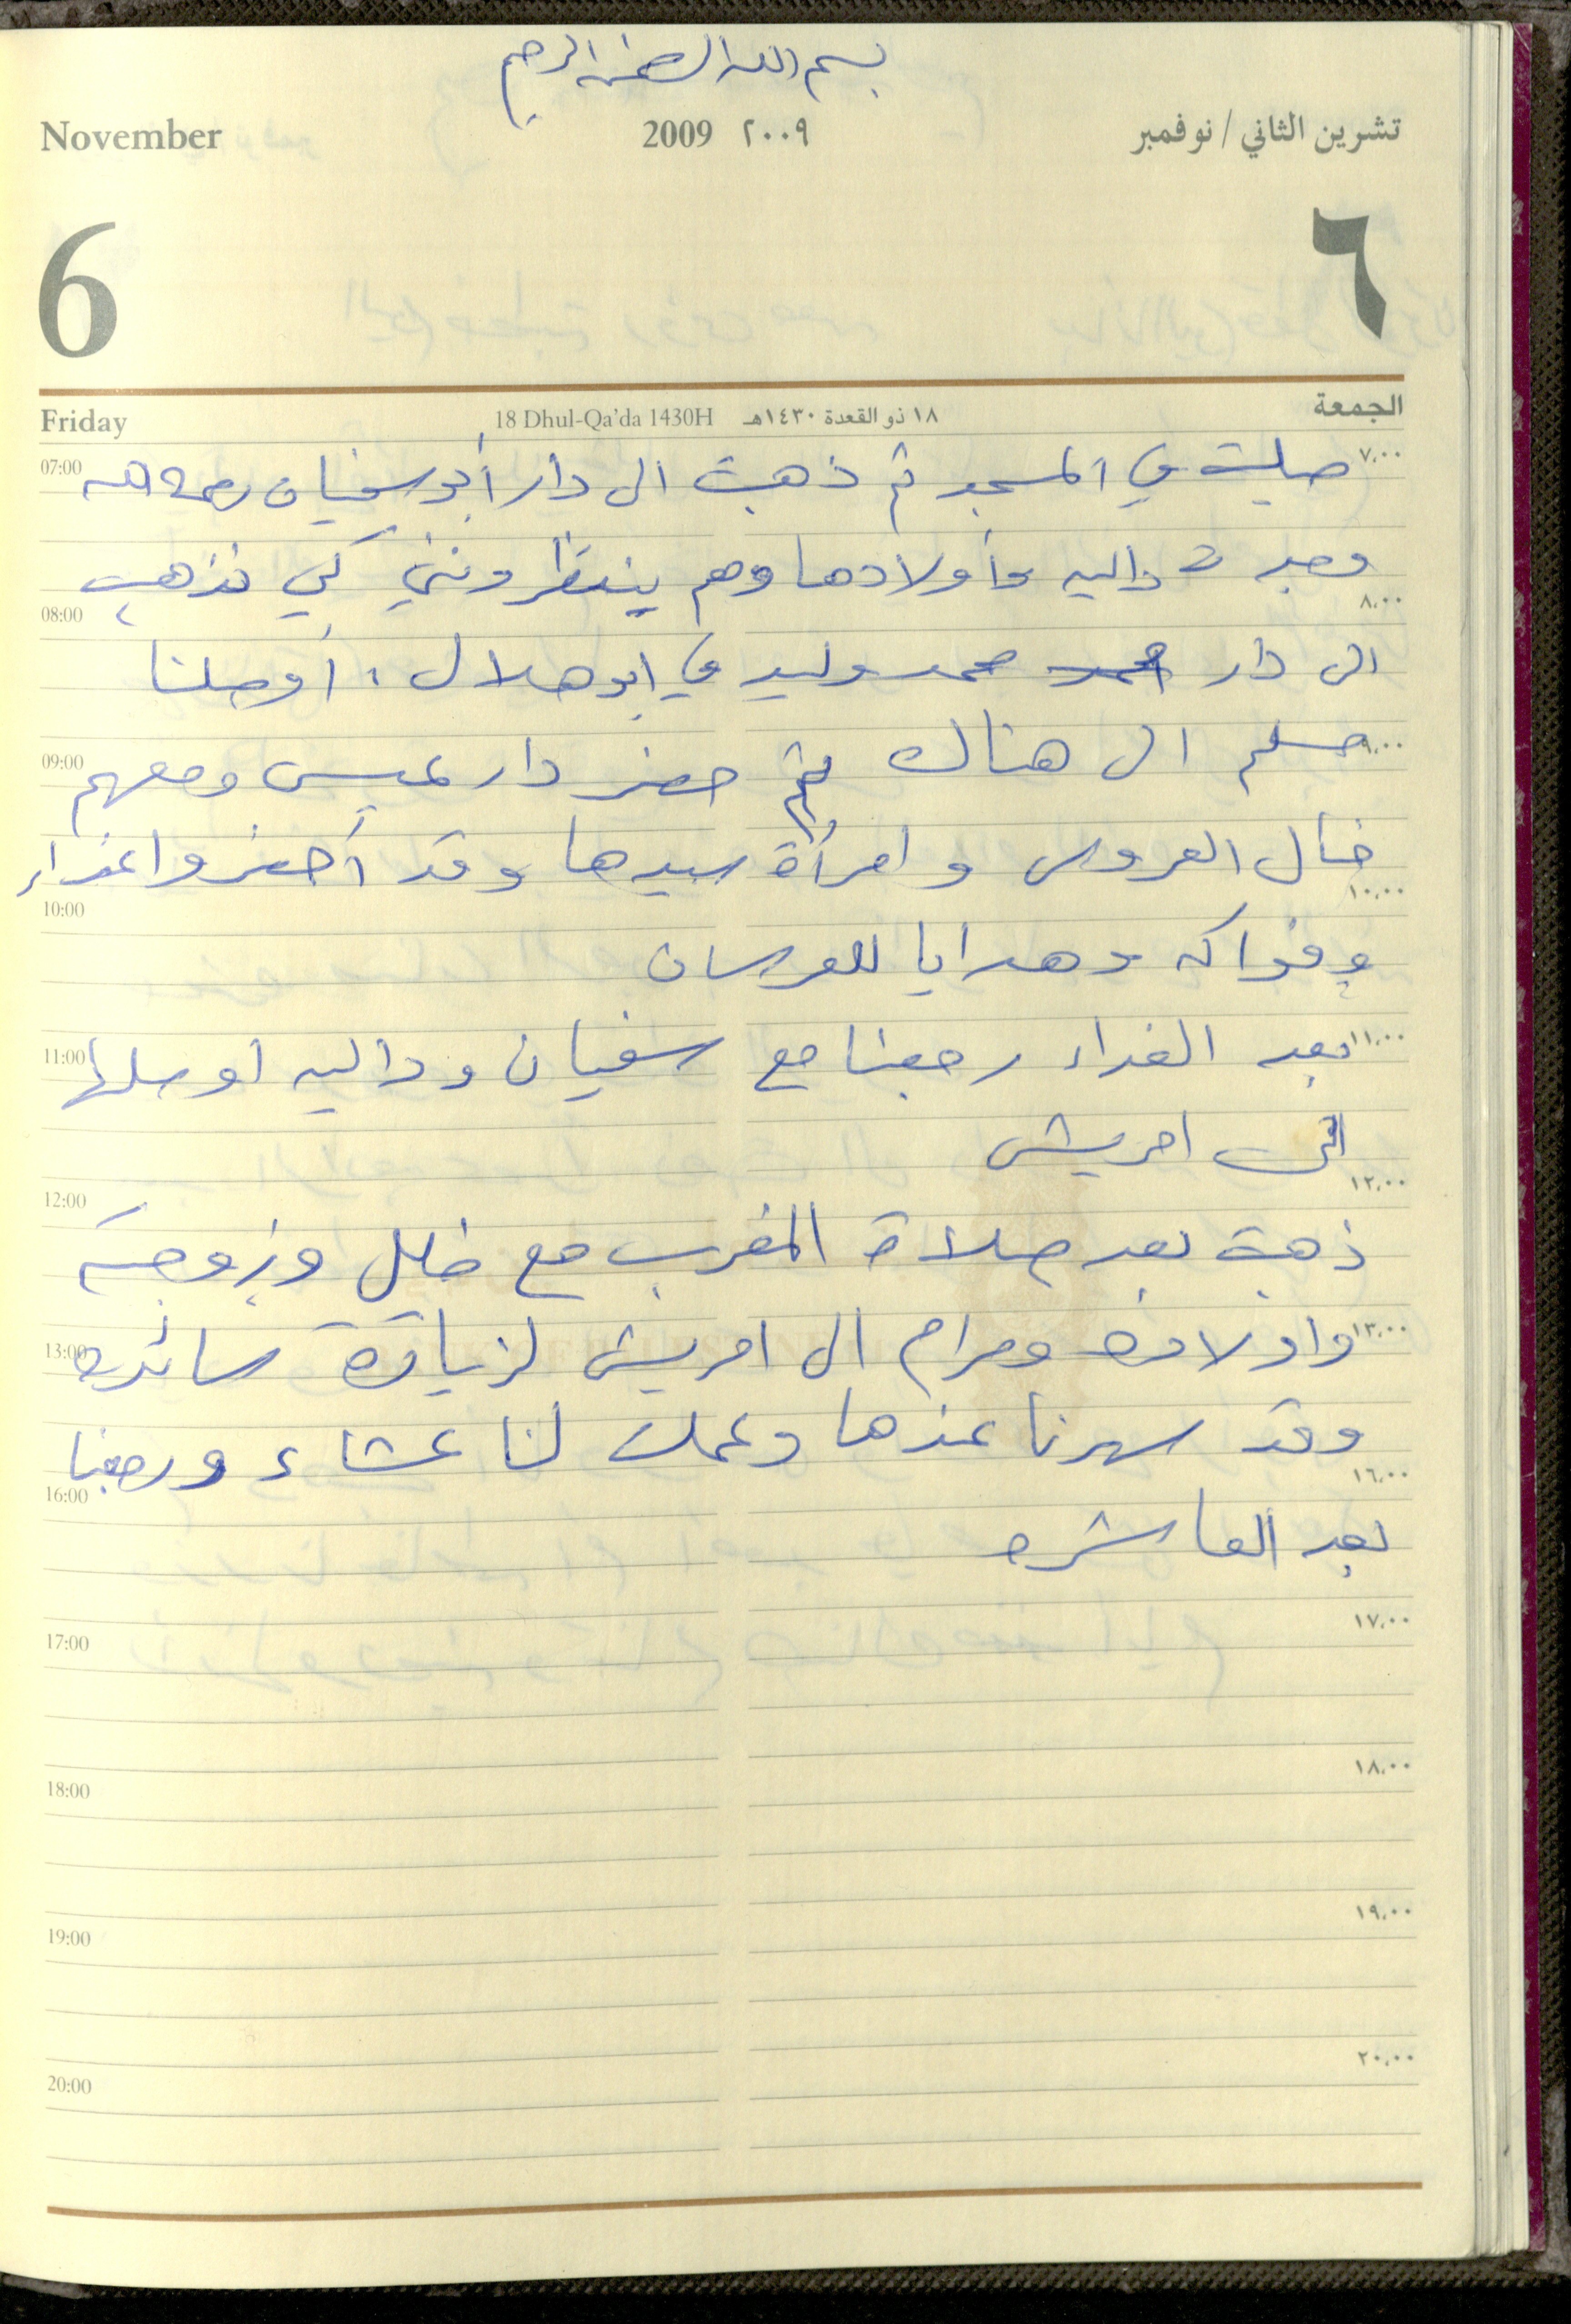 بسم الله الرحمن الرحيم
November 2009 ٢٠٠٩ تشرين الثاني / نوفمبر
6 ٦
Friday 18 Dhul-Qa'da 1430H ١٨ ذو القعدة ١٤٣٠هـ الجمعة
07:00 ٧،٠٠
صليت في المسجد ثم ذهبت الى دار أبو سفيان رحمه الله
وجدت داليه وأولادها وهم ينتظرونني كي نذهب
08:00 ٨،٠٠
الى دار محمد وليد في ابو هلال، أوصلنا
09:00 ٩،٠٠
مسلم الى هناك ثم حضر دار عميس ومعهم
خال العروس وامرأة سيدها وقد أحضروا غداء
10:00 ١٠،٠٠
وفواكه وهدايا للعرسان
11:00 ١١،٠٠
بعد الغداء رجعنا مع سفيان وداليه اوصلها
الى امريش
12:00 ١٢،٠٠
ذهبت بعد صلاة المغرب مع خليل وزوجته
13:00 ١٣،٠٠
واولاده ومرام الى امريش لزيارة سائده
وقد سهرنا عندها وعملت لنا عشاء ورجعنا
16:00 ١٦،٠٠
بعد العاشره
17:00 ١٧،٠٠
18:00 ١٨،٠٠
19:00 ١٩،٠٠
20:00 ٢٠،٠٠